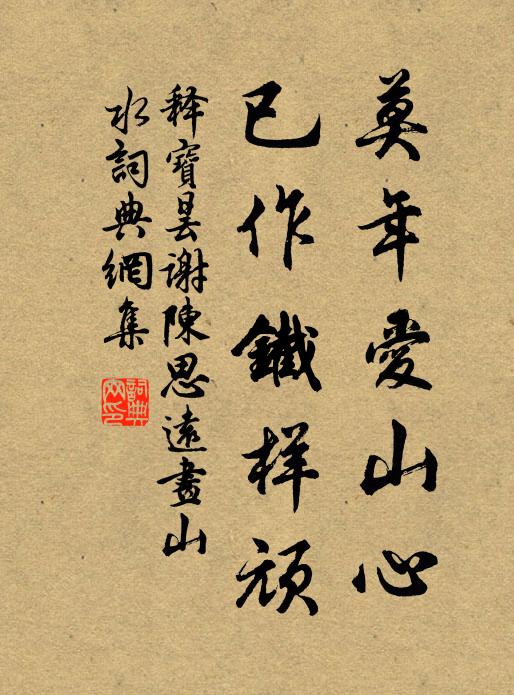 莫年愛山心
已作鐵样頑
释寶曇謝陳思遠畫山
水詞典網集
詞典
網印